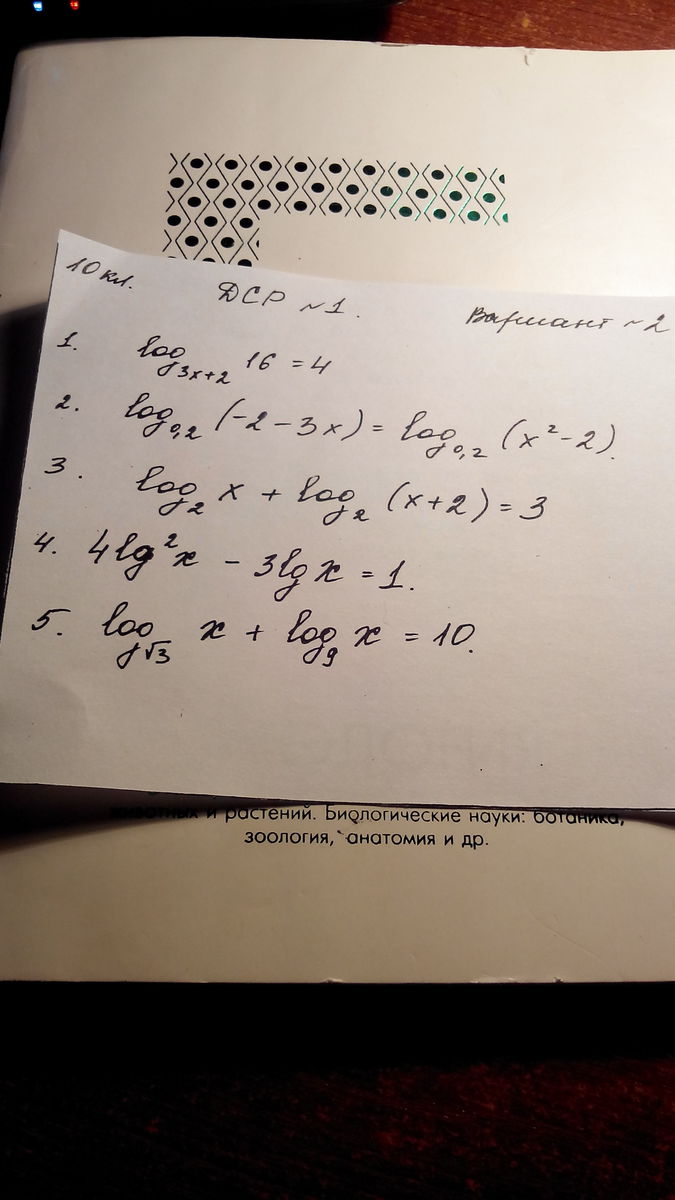 10 кл.
ДСР ~1.
Вариант ~2
1. log_{3x+2} 16 = 4
2. log_{0,2} (-2 - 3x) = log_{0,2} (x² - 2).
3. log_2 x + log_2 (x+2) = 3
4. 4lg²x - 3lg x = 1.
5. log_{√3} x + log_9 x = 10.
животных и растений. Биологические науки: ботаника,
зоология, анатомия и др.